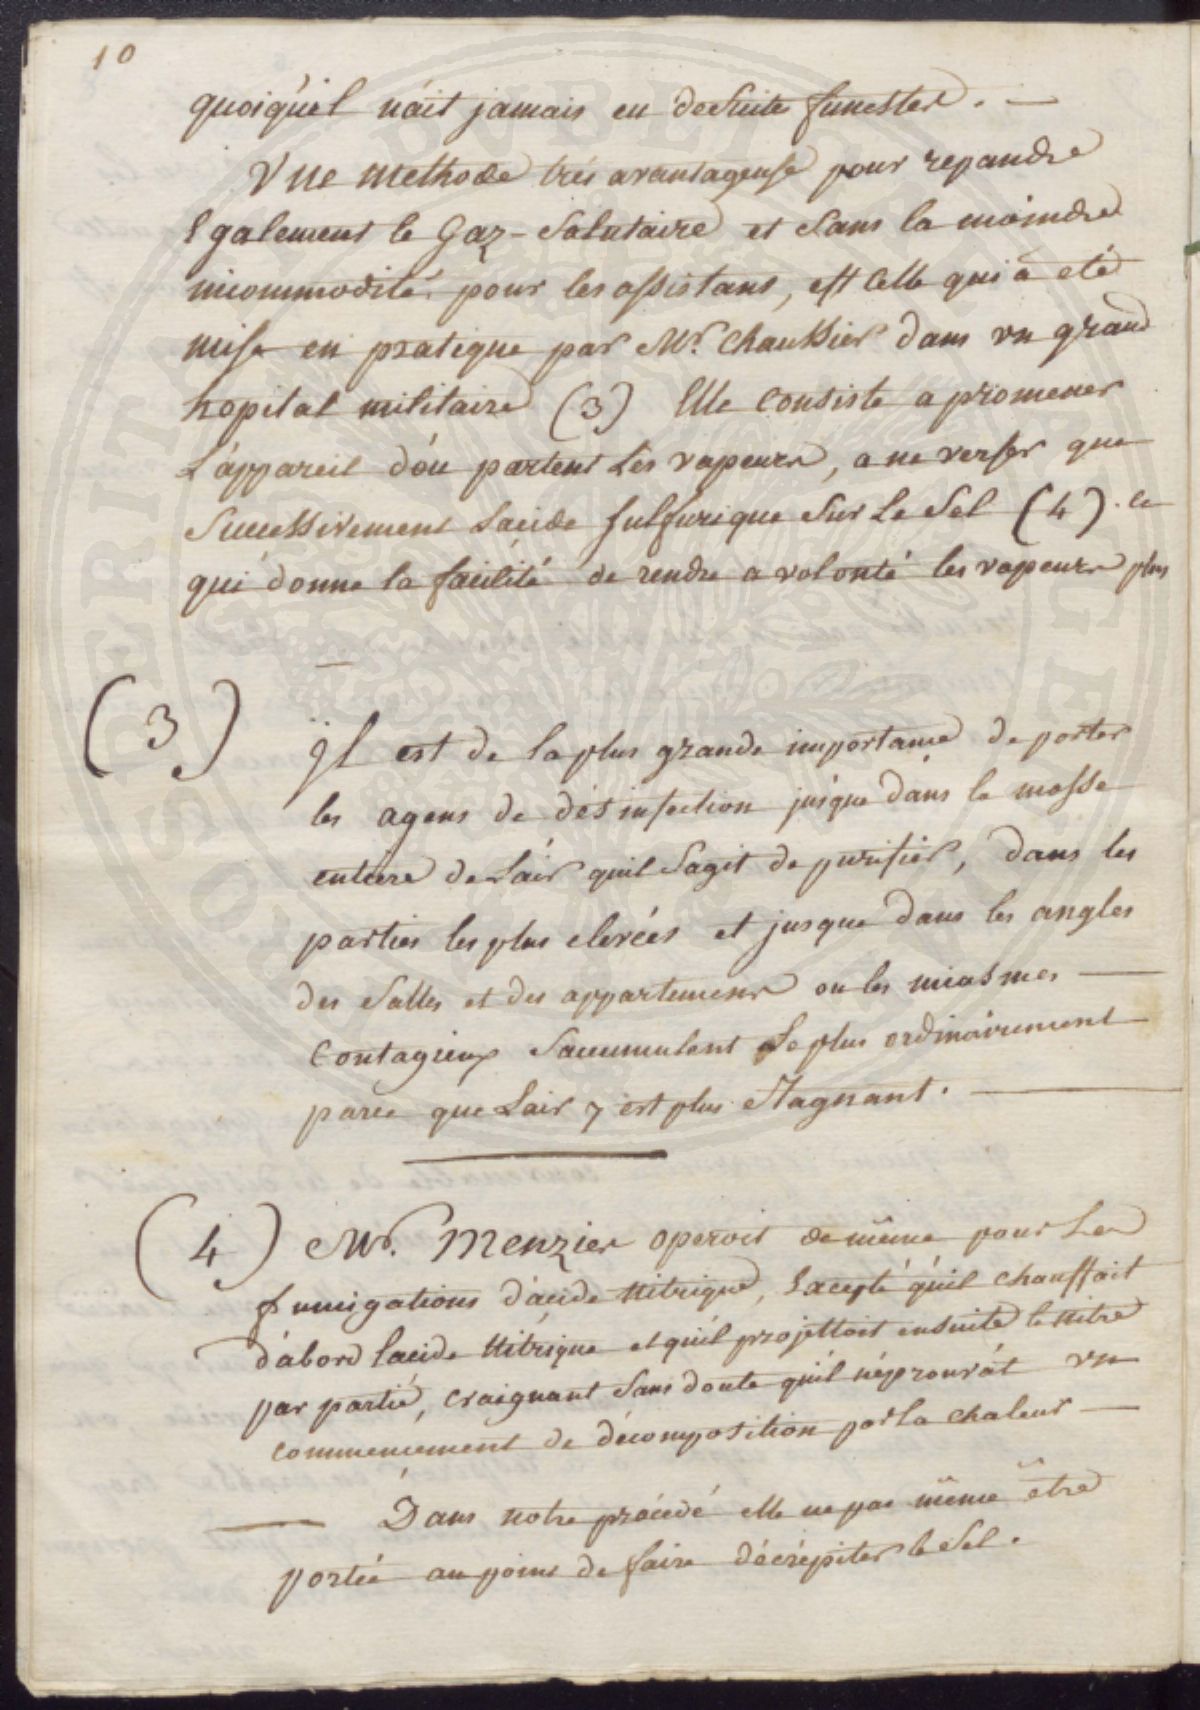 10
quoiqu'il n'ait jamais eu desuite funestes. —
Vne methode très avantageuse pour repandre
Egalement le Gaz-Salutaire et sans la moindre
incommodité pour les assistans, est Celle qui à eté
mise en pratique par Mr. Chaussier dans vn grand
hopital militaire (3) Elle Consiste a promener
L'appareil d'óu partent Les vapeurs, a ne verser que
Successivement Lacide sulfurique Sur Le Sel (4). ce
qui donne la facilité de rendre a volonté les vapeurs plus
(3)
Il est de la plus grande importance de porter
les agens de désinfection jusque dans la masse
entiere de L'air quil Sagit de purifier, dans les
parties les plus elevées et jusque dans les angles
des Salles et des appartemens ou les miasmes —
Contagieux Saccumulent Le plus ordinairement
parce que Lair y est plus Stagnant. —
(4) Mr. Menzies operoit de même pour Les
fumigations d'acide Nitrique, Excepté qu'il chauffait
d'abord lacide Nitrique et qu'il projettoit ensuite le Nitre
par partie, craignant Sans doute qu'il n'éprouvât vn
commencement de décomposition par la chaleur —
— Dans notre procédé elle ne pas même être
portée au point de faire décrépiter le Sel.